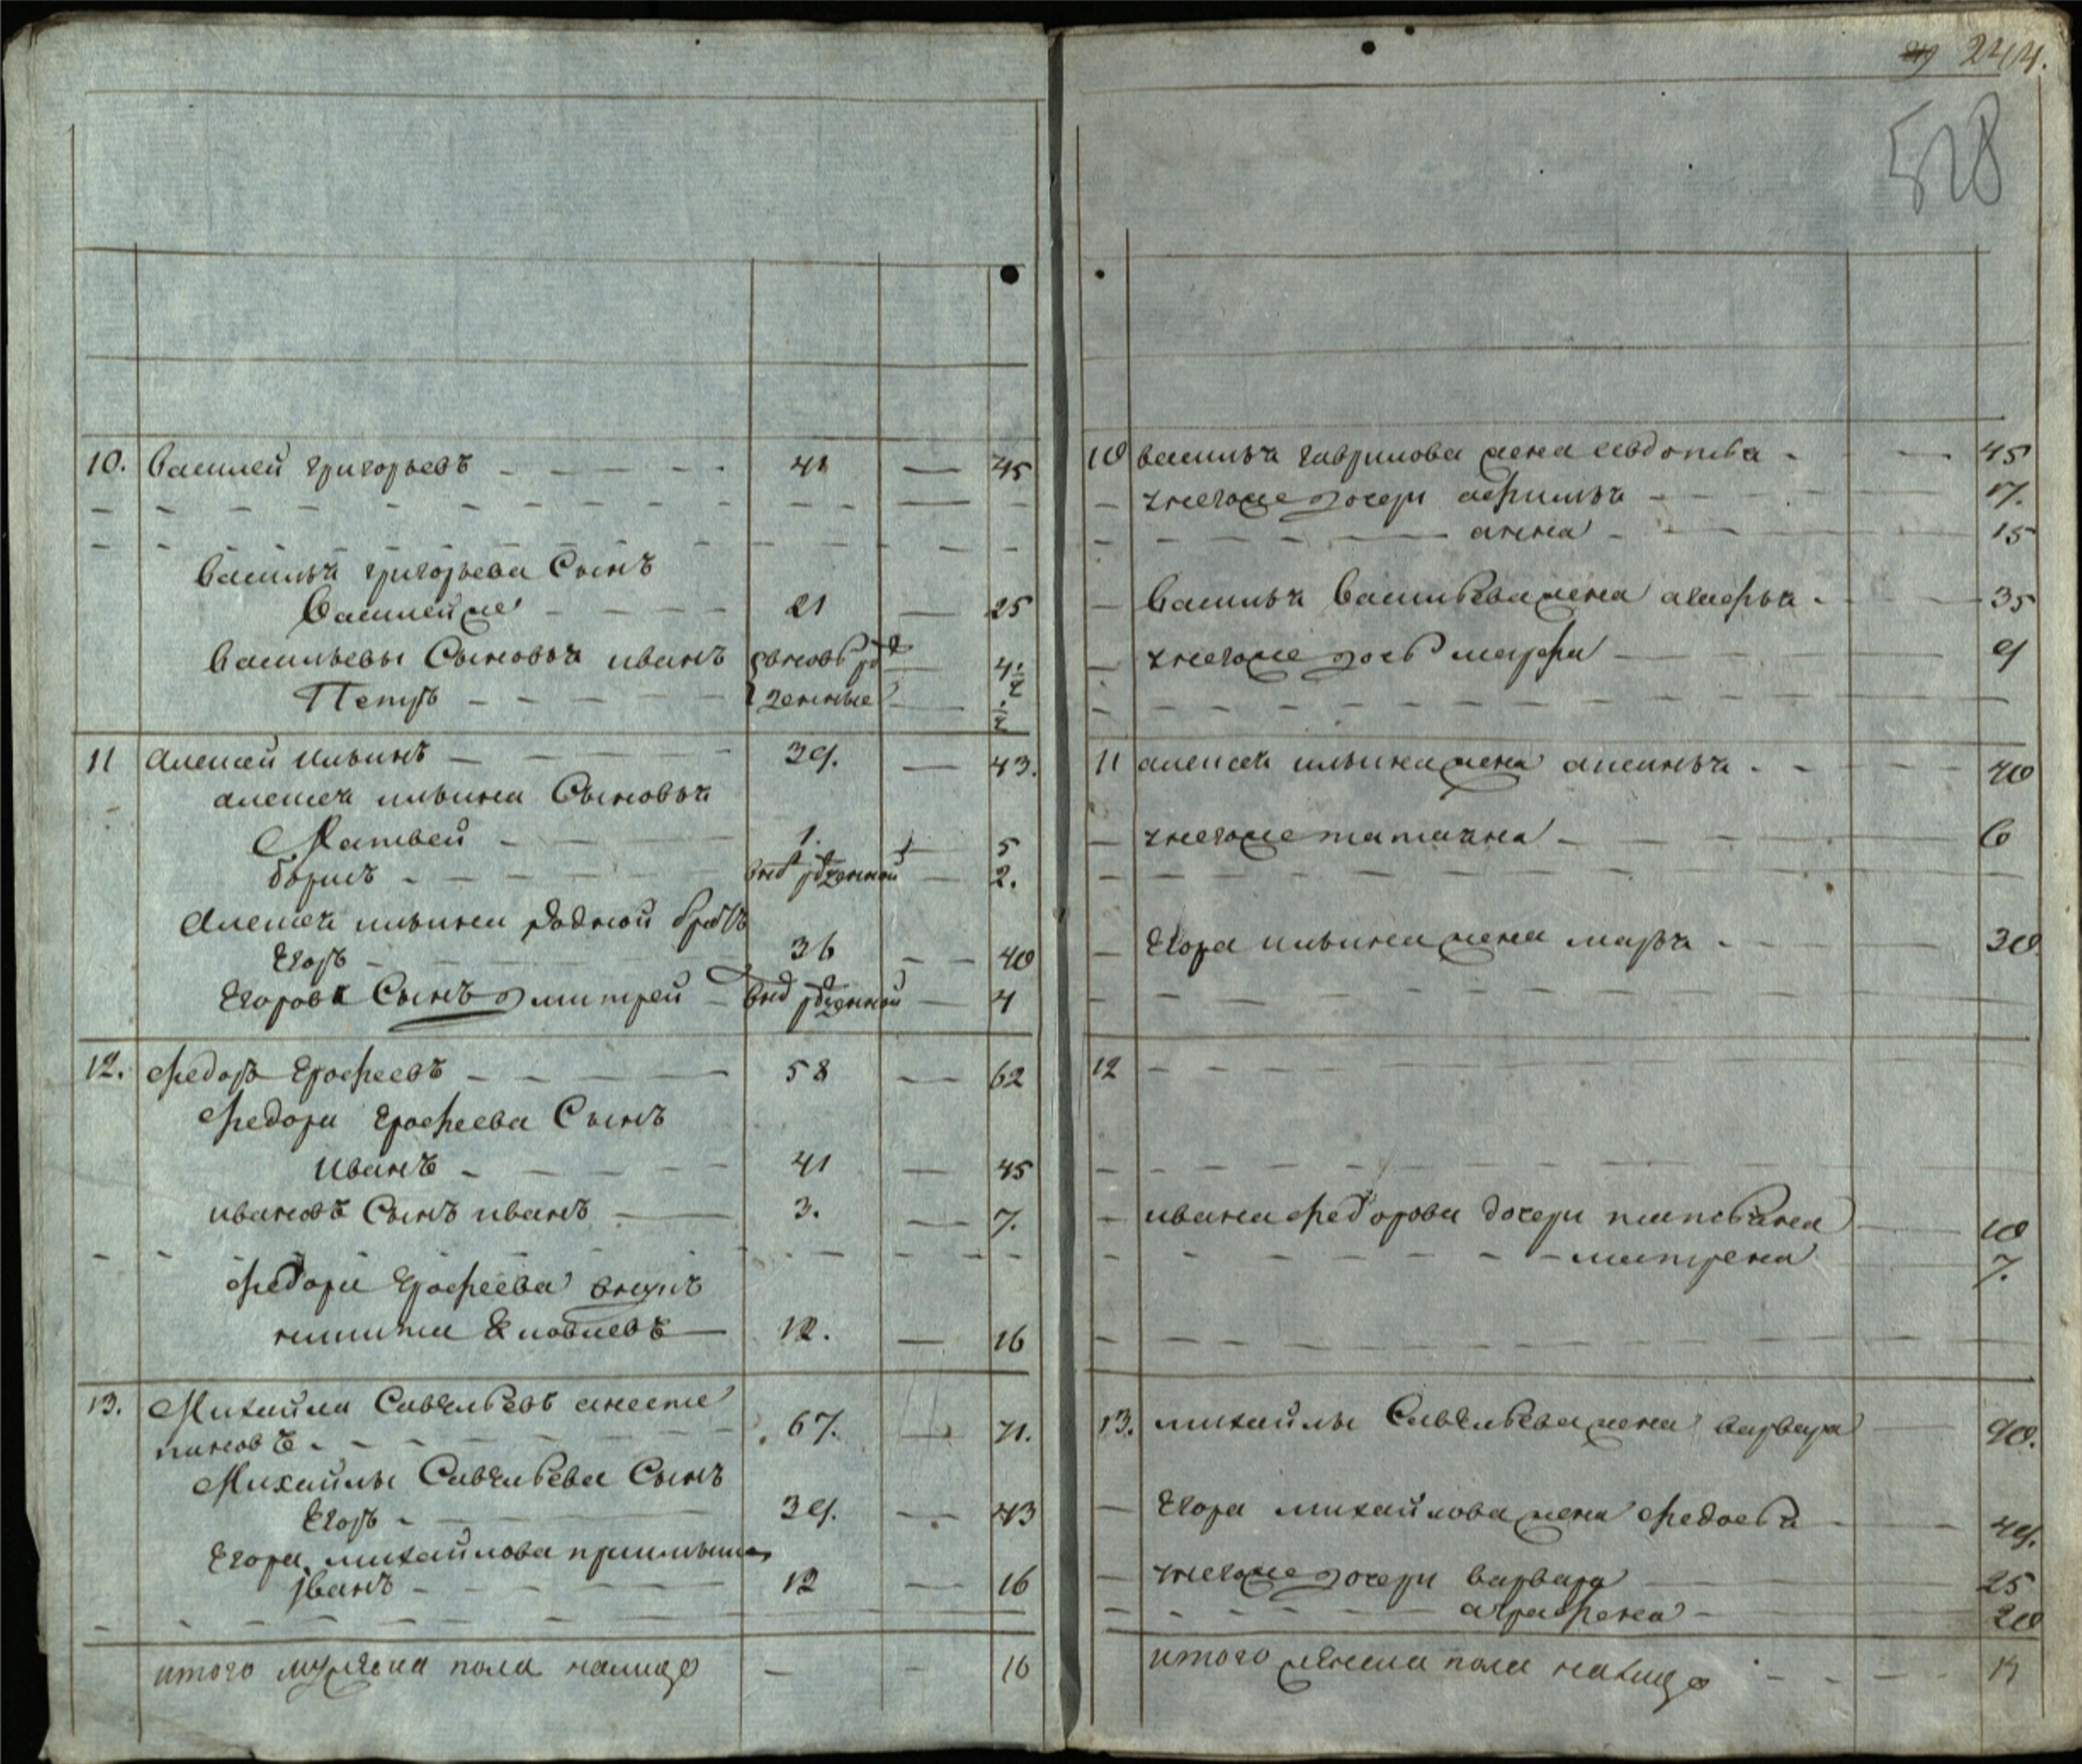 244.
528
10. Василей григорьевъ 41 45
Василья григорьева Сынъ
Василей же 21 25
Васильевы Сыновья иванъ 4 1/2
Петръ 1/2
11 Алексей Ильинъ 39. 43.
алексея ильина Сыновья
Матвей 1. 5
борисъ 2.
Алексея ильина родной братъ
Егоръ 36 40
Егоровъ Сынъ дмитрей 4
12. Федоръ Ерофеевъ 58 62
Федора Ерофеева Сынъ
Иванъ 41 45
ивановъ Сынъ иванъ 3. 7.
Федора Ерофеева внукъ
никита 12. 16
13. Михайла Савельевъ 67. 71.
Михайлы Савельева Сынъ
Егоръ 39. 43
Егора михайлова приимышъ
Иванъ 12 16
итого мужеска пола налицо 16
10 василья гаврилова жена евдотья 45
у него же дочери афимья 17.
анна 15
Василья Васильева жена агафья 35
у него же дочь марфа 9
11 алексея ильина жена аксинья 40
у него же татьяна 6
Егора ильина жена марья 30
12
ивана федорова дочери татьяна 10
матрена 7.
13. михайлы Савельева жена варвара 90.
Егора михайлова жена федосья 49.
у него же дочери варвара 25
аграфена 20
итого женска пола налицо